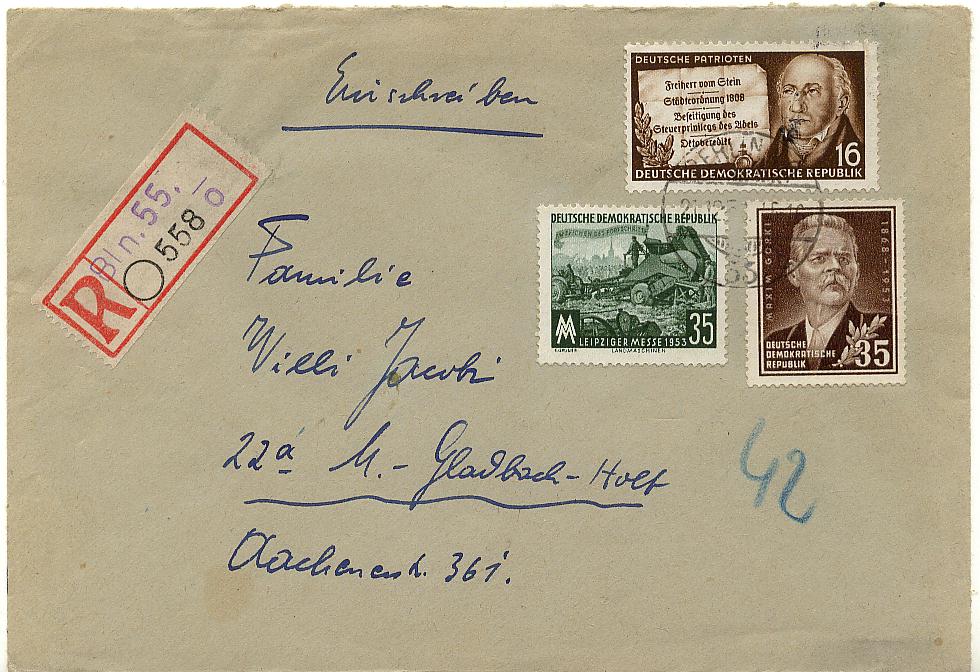 Einschreiben
R
Bln. 55.
558
Familie
Willi Jacobi
22a M.-Gladbach-Holt
Aachenerstr. 361.
42
DEUTSCHE PATRIOTEN
Freiherr vom Stein
Städteordnung 1808
Beseitigung des
Steuerprivilegs des Adels
Oktoberedikt
16
DEUTSCHE DEMOKRATISCHE REPUBLIK
DEUTSCHE DEMOKRATISCHE REPUBLIK
IM ZEICHEN DES FORTSCHRITTS
35
LEIPZIGER MESSE 1953
LANDMASCHINEN
MAXIM GORKI
1868 1953
DEUTSCHE
DEMOKRATISCHE
REPUBLIK
35
BERLIN